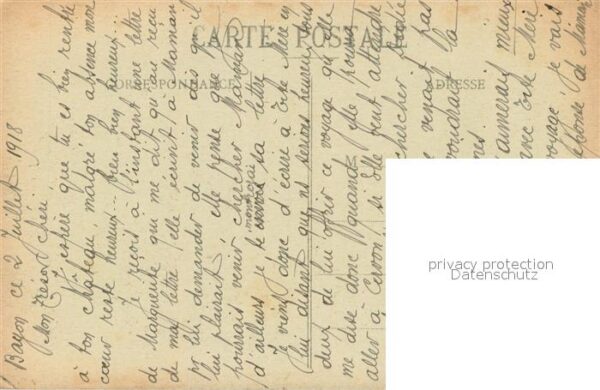 CARTE POSTALE
CORRESPONDANCE
ADRESSE
Bayon ce 2 Juillet 1918
Mon Trésor chéri,
J'espère que tu es bien rentré
à ton château, malgré ton absence mon
cœur reste heureux... bien bien heureux...
Je reçois à l'instant une lettre
de Marguerite qui me dit qu'au reçu
de ma lettre elle écrivit à Maman
pr lui demander de venir dès qu'il
lui plairait, elle pense que je
pourrais venir chercher
d'ailleurs je te montrerai sa lettre
Je viens donc d'écrire à Tite Mère en
lui disant que ns serons heureux tous
deux de lui offrir ce voyage qu'elle
me dise donc quand elle pourra
aller à, si elle peut attendre
chercher
venant pas
voudrait la
aimerais mieux
Tite Mère
voyage, je vais
réponse de Maman
privacy protection
Datenschutz